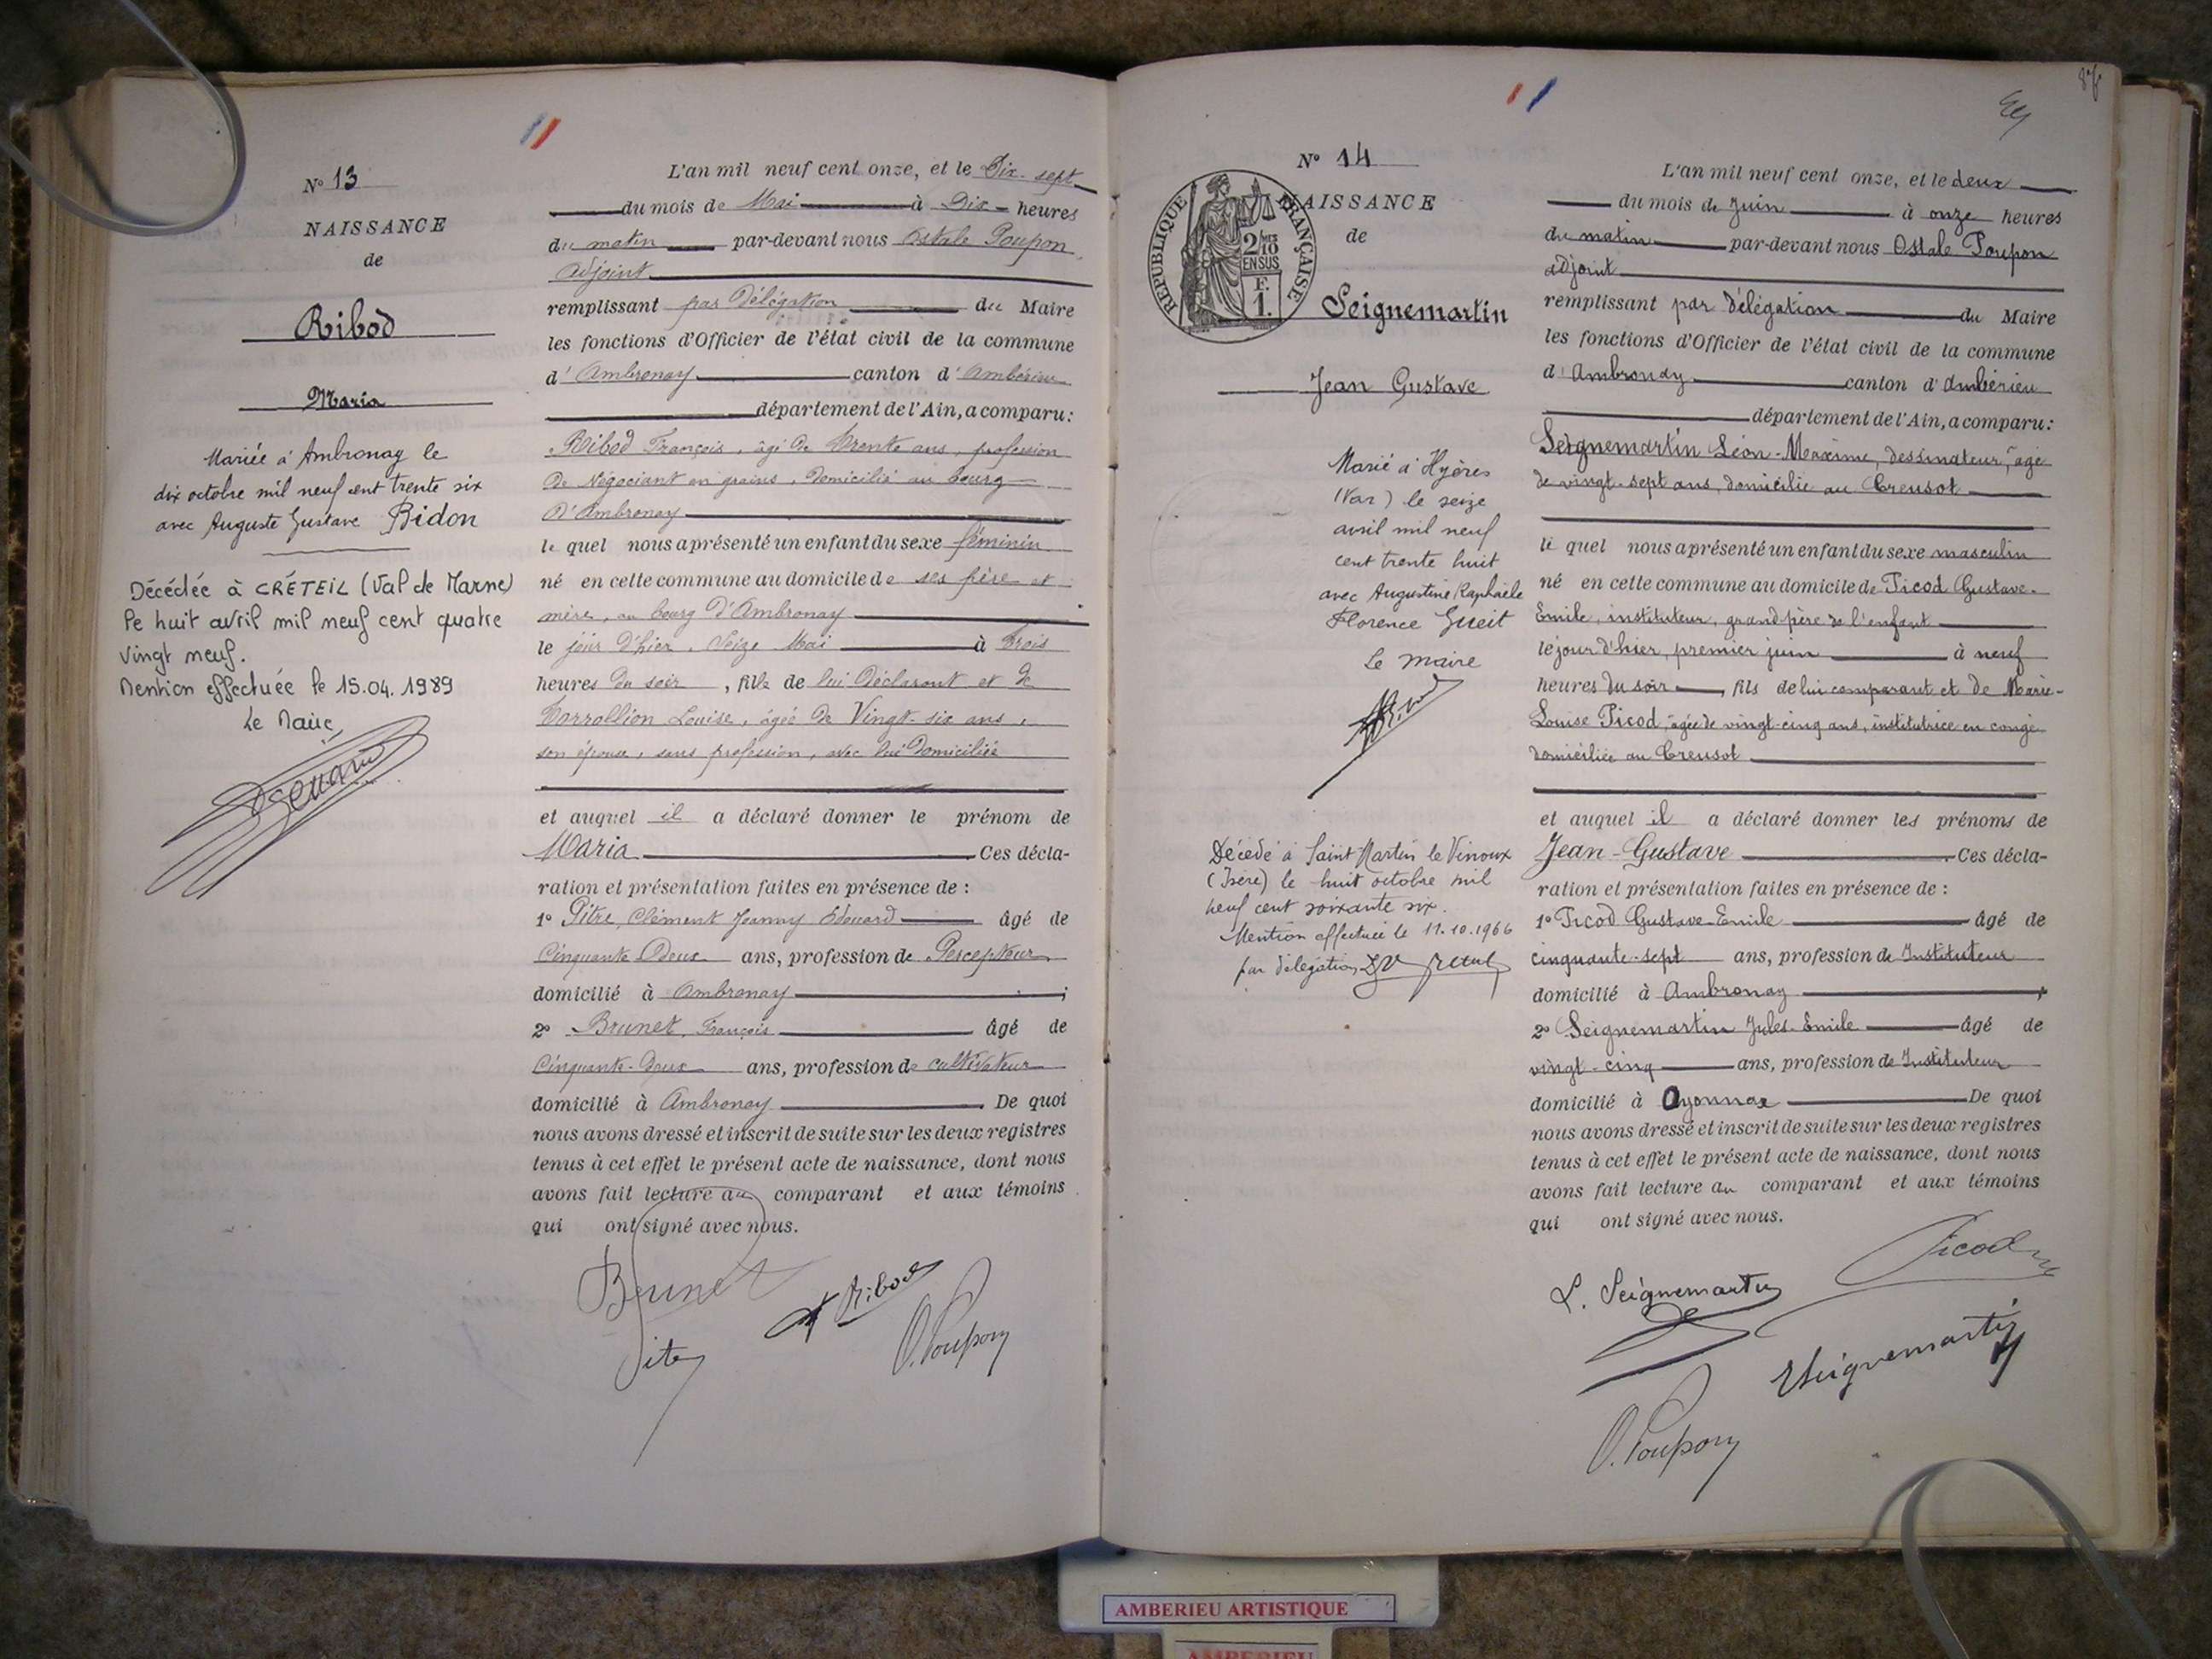 N° 13
NAISSANCE
de
Ribod
Maria
Mariée à Ambronay le
dix octobre mil neuf cent trente six
avec Auguste Gustave Bidon
Décédée à CRÉTEIL (Val de Marne)
le huit avril mil neuf cent quatre
vingt neuf.
Mention effectuée le 15.04.1989
Le Maire,
L'an mil neuf cent onze, et le Dix-sept
du mois de Mai à Dix heures
du matin par-devant nous Ostale Poupon,
adjoint
remplissant par Délégation du Maire
les fonctions d'Officier de l'état civil de la commune
d'Ambronay canton d'Ambérieu
département de l'Ain, a comparu:
Ribod François, âgé de trente ans, profession
de Négociant en grains, domicilié au bourg
d'Ambronay
le quel nous a présenté un enfant du sexe féminin
né en cette commune au domicile de ses père et
mère, au bourg d'Ambronay
le jour d'hier, Seize Mai à trois
heures du soir, fille de lui Déclarant et de
Louise, âgée de Vingt-six ans,
son épouse, sans profession, avec lui Domiciliée
et auquel il a déclaré donner le prénom de
Maria Ces décla-
ration et présentation faites en présence de :
1° Pitre, Clément Joanny Edouard âgé de
Cinquante Deux ans, profession de Percepteur
domicilié à Ambronay ;
2° Brunet, François âgé de
Cinquante-Deux ans, profession de cultivateur
domicilié à Ambronay. De quoi
nous avons dressé et inscrit de suite sur les deux registres
tenus à cet effet le présent acte de naissance, dont nous
avons fait lecture au comparant et aux témoins
qui ont signé avec nous.
Brunet
F Ribod
Pitre
O. Poupon
N° 14
NAISSANCE
de
RÉPUBLIQUE FRANÇAISE
2/10
EN SUS
F.
1.
Seignemartin
Jean Gustave
Marié à Hyères
(Var) le seize
avril mil neuf
cent trente huit
avec Augustine Raphaële
Florence Gueit
Le maire
Décédé à Saint Martin le Vinoux
(Isère) le huit octobre mil
neuf cent soixante six.
Mention effectuée le 11.10.1966
par délégation
L'an mil neuf cent onze, et le deux
du mois de Juin à onze heures
du matin par-devant nous Ostale Poupon
adjoint
remplissant par délégation du Maire
les fonctions d'Officier de l'état civil de la commune
d'Ambronay canton d'Ambérieu
département de l'Ain, a comparu:
Seignemartin Léon-Maxime, dessinateur, âgé
de vingt-sept ans, domicilié au Creusot
le quel nous a présenté un enfant du sexe masculin
né en cette commune au domicile de Picod Gustave-
Emile, instituteur, grand-père de l'enfant
le jour d'hier, premier juin à neuf
heures du soir, fils de lui comparant et de Marie-
Louise Picod, âgée de vingt-cinq ans, institutrice en congé
domiciliée au Creusot
et auquel il a déclaré donner les prénoms de
Jean-Gustave. Ces décla-
ration et présentation faites en présence de :
1° Picod Gustave-Emile âgé de
cinquante-sept ans, profession de Instituteur
domicilié à Ambronay ;
2° Seignemartin Jules-Emile âgé de
vingt-cinq ans, profession de Instituteur
domicilié à Oyonnax De quoi
nous avons dressé et inscrit de suite sur les deux registres
tenus à cet effet le présent acte de naissance, dont nous
avons fait lecture au comparant et aux témoins
qui ont signé avec nous.
Picod
L. Seignemartin
Seignemartin
O. Poupon
AMBERIEU ARTISTIQUE
AMBERIEU